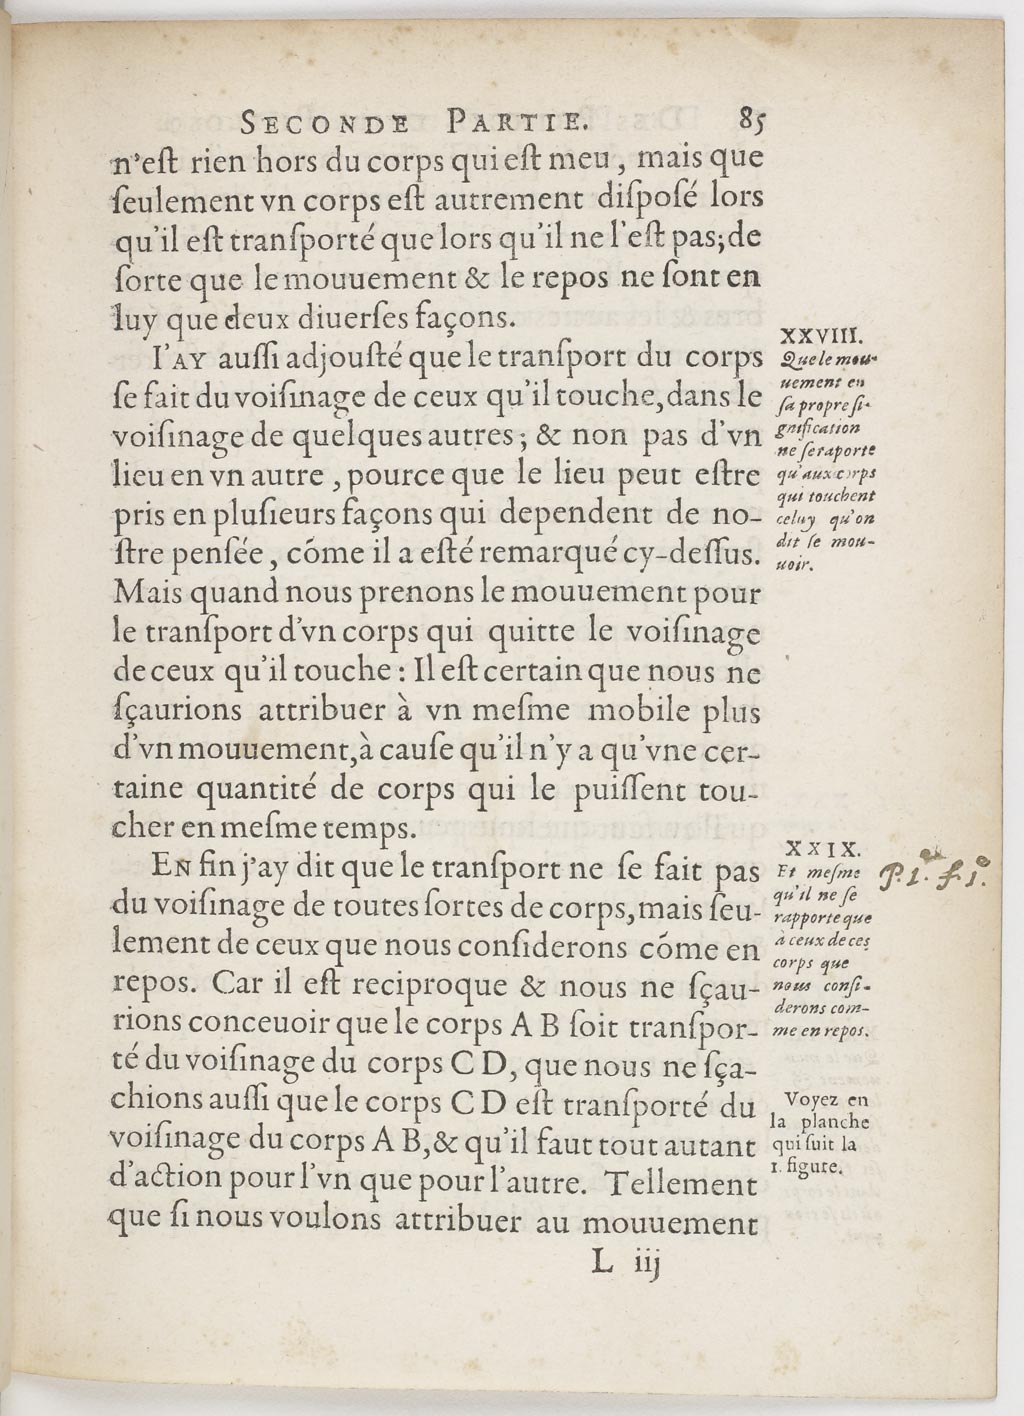 SECONDE PARTIE. 85
n'eſt rien hors du corps qui eſt meu, mais que
ſeulement vn corps eſt autrement diſpoſé lors
qu'il eſt tranſporté que lors qu'il ne l'eſt pas; de
ſorte que le mouuement & le repos ne ſont en
luy que deux diuerſes façons.
I'AY auſſi adjouſté que le tranſport du corps
ſe fait du voiſinage de ceux qu'il touche, dans le
voiſinage de quelques autres; & non pas d'vn
lieu en vn autre, pource que le lieu peut eſtre
pris en pluſieurs façons qui dependent de no-
ſtre penſée, cóme il a eſté remarqué cy-deſſus.
Mais quand nous prenons le mouuement pour
le tranſport d'vn corps qui quitte le voiſinage
de ceux qu'il touche: Il eſt certain que nous ne
ſçaurions attribuer à vn meſme mobile plus
d'vn mouuement, à cauſe qu'il n'y a qu'vne cer-
taine quantité de corps qui le puiſſent tou-
cher en meſme temps.
XXVIII.
Que le mou-
uement en
ſa propre ſi-
gnification
ne ſe raporte
qu'aux corps
qui touchent
celuy qu'on
dit ſe mou-
uoir.
EN fin j'ay dit que le tranſport ne ſe fait pas
du voiſinage de toutes ſortes de corps, mais ſeu-
lement de ceux que nous conſiderons cóme en
repos. Car il eſt reciproque & nous ne ſçau-
rions conceuoir que le corps A B ſoit tranſpor-
té du voiſinage du corps C D, que nous ne ſça-
chions auſſi que le corps C D eſt tranſporté du
voiſinage du corps A B, & qu'il faut tout autant
d'action pour l'vn que pour l'autre. Tellement
que ſi nous voulons attribuer au mouuement
XXIX.
Et meſme
qu'il ne ſe
rapporte que
à ceux de ces
corps que
nous conſi-
derons com-
me en repos.
P. 1ª. f. 1ª.
Voyez en
la planche
qui ſuit la
1. figure.
L iij